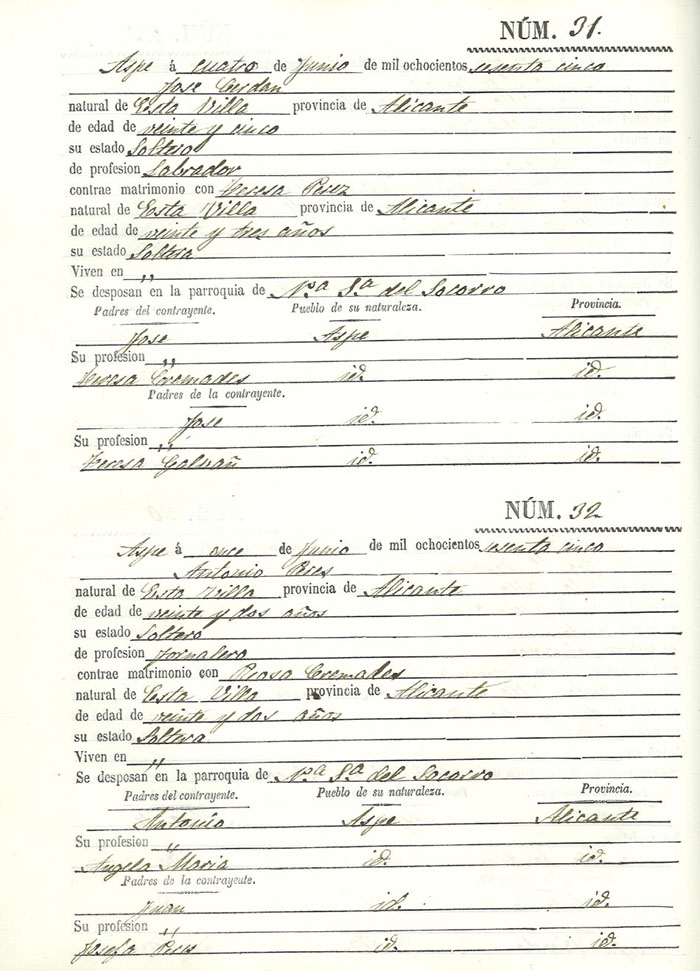 NÚM. 31.
Aspe á cuatro de Junio de mil ochocientos sesenta cinco
Jose Cerdan
natural de Esta Villa provincia de Alicante
de edad de veinte y cinco
su estado Soltero
de profesion Labrador
contrae matrimonio con Teresa Perez
natural de Esta Villa provincia de Alicante
de edad de veinte y tres años
su estado Soltera
Viven en ,,
Se desposan en la parroquia de Nª Sª del Socorro
Padres del contrayente. Pueblo de su naturaleza. Provincia.
Jose Aspe Alicante
Su profesion ,,
Teresa Cremades id. id.
Padres de la contrayente.
Jose id. id.
Su profesion ,,
Teresa Galvañ id. id.
NÚM. 32
Aspe á once de Junio de mil ochocientos sesenta cinco
Antonio
natural de Esta Villa provincia de Alicante
de edad de veinte y dos años
su estado Soltero
de profesion Jornalero
contrae matrimonio con Rosa Cremades
natural de Esta Villa provincia de Alicante
de edad de veinte y dos años
su estado Soltera
Viven en ,,
Se desposan en la parroquia de Nª Sª del Socorro
Padres del contrayente. Pueblo de su naturaleza. Provincia.
Antonio Aspe Alicante
Su profesion ,,
Angela Maria id. id.
Padres de la contrayente.
Juan id. id.
Su profesion ,,
Josefa id. id.